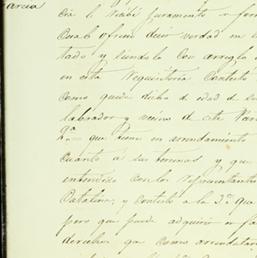 arcia
cia le recibí juramento in for
cual ofreció decir verdad en
tado y siendolo con arreglo
en esta Requisitoria Contestó
como queda dicho de edad de
labrador y vecino de esta
que tiene en arrendamiento
cuanto a sus terminos y que
entendido con los Representantes
Catalina; y contestó a la 3ª Que
pero que puede adquirir
derechos que como arrendata